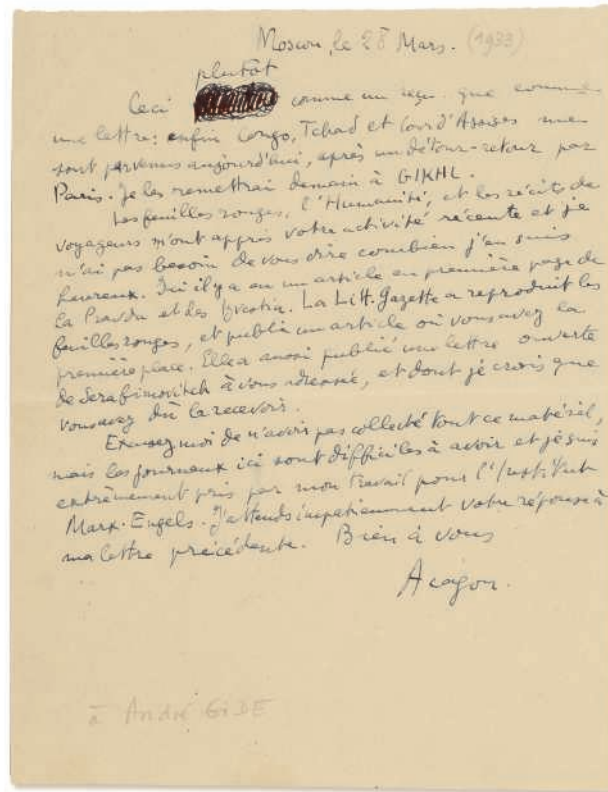 Moscou, le 28 Mars. (1933)
plutôt
Ceci comme un reçu que comme
une lettre: enfin Congo, Tchad et Cour d'Assises me
sont parvenus aujourd'hui, après un détour-retour par
Paris. Je les remettrai demain à GIKHL.
Les feuilles rouges, l'Humanité, et les récits de
voyageurs m'ont appris votre activité récente et je
n'ai pas besoin de vous dire combien j'en suis
heureux. Ici il y a eu un article en première page de
la Pravda et des Izvestia. La Litt. Gazette a reproduit les
feuilles rouges, et publié un article où vous avez la
première place. Elle a aussi publié une lettre ouverte
de Serafimovitch à vous adressée, et dont je crois que
vous avez dû la recevoir.
Excusez moi de n'avoir pas collecté tout ce matériel,
mais les journaux ici sont difficiles à avoir et je suis
extrêmement pris par mon travail pour l'Institut
Marx-Engels. J'attends impatiemment votre réponse à
ma lettre précédente. Bien à vous
Aragon.
à André GIDE